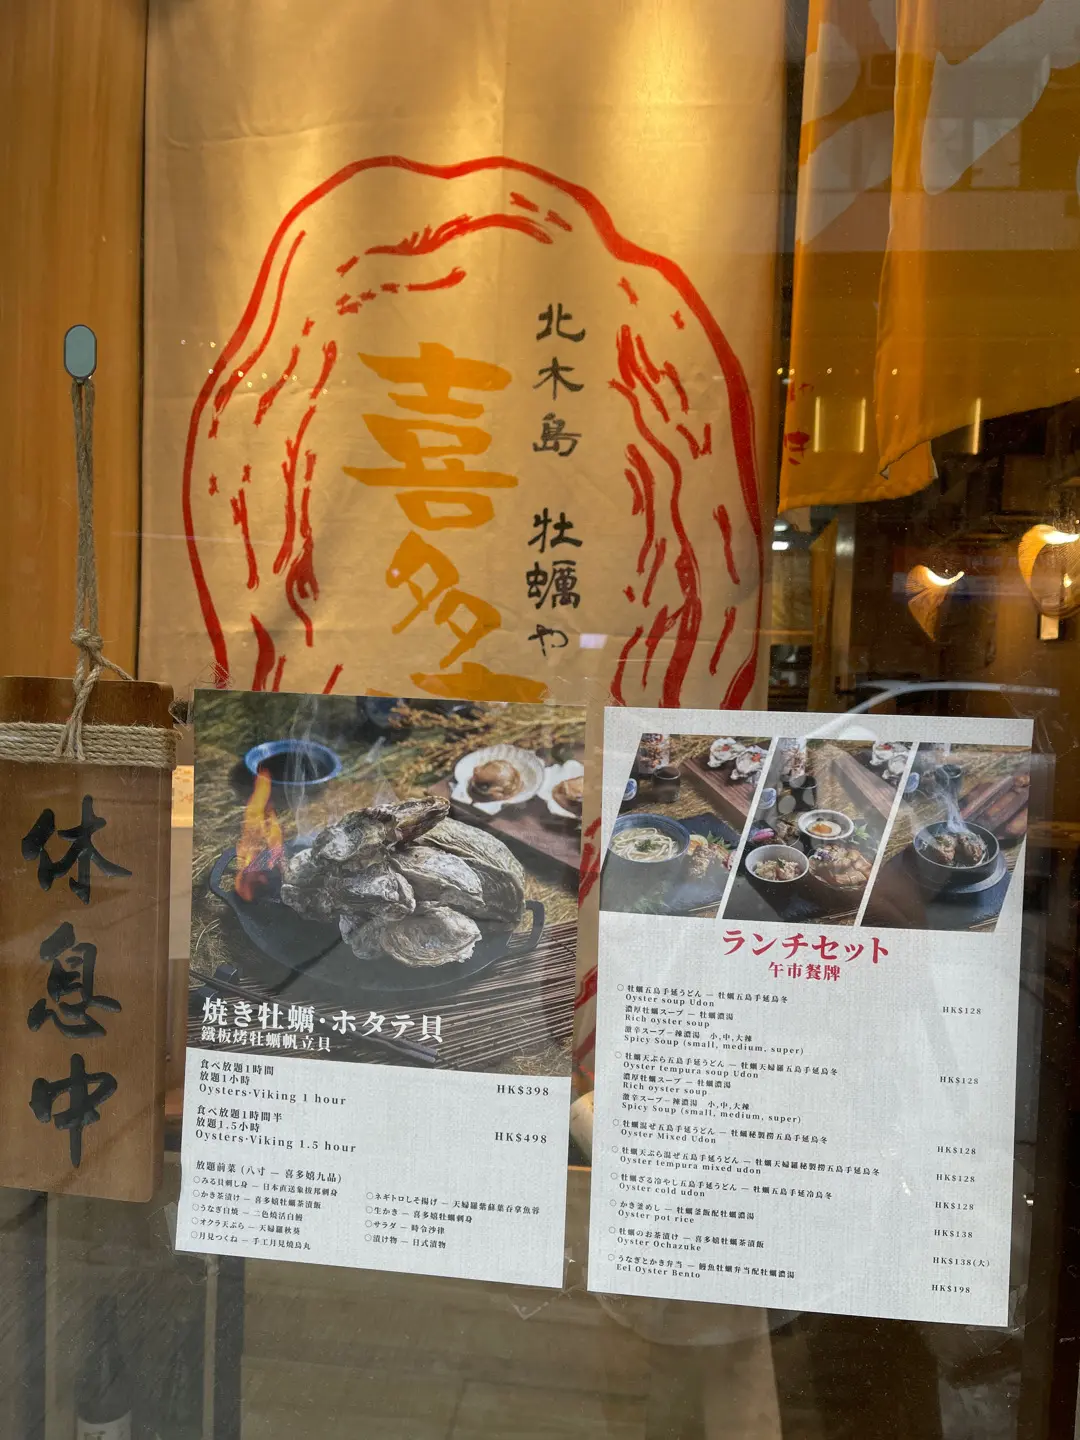 北木島 牡蠣や
喜多
やき
休息中
焼き牡蠣・ホタテ貝
鐵板烤牡蠣帆立貝
食べ放題1時間
放題1小時
Oysters·Viking 1 hour
HK$398
食べ放題1時間半
放題1.5小時
Oysters·Viking 1.5 hour
HK$498
放題前菜 (八寸 — 喜多嬉九品)
○みる貝刺し身 — 日本直送象拔邦刺身
○かき茶漬け — 喜多嬉牡蠣茶漬飯
○うなぎ白焼 — 二色燒活白鰻
○オクラ天ぷら — 天婦羅秋葵
○月見つくね — 手工月見燒鳥丸
○ネギトロしそ揚げ — 天婦羅紫蘇葉吞拿魚蓉
○生かき — 喜多嬉牡蠣刺身
○サラダ — 時令沙律
○漬け物 — 日式漬物
ランチセット
午市餐牌
○ 牡蠣五島手延うどん — 牡蠣五島手延烏冬
Oyster soup Udon
HK$128
濃厚牡蠣スープ — 牡蠣濃湯
Rich oyster soup
激辛スープ — 辣濃湯 小,中,大辣
Spicy Soup (small, medium, super)
○ 牡蠣天ぷら五島手延うどん — 牡蠣天婦羅五島手延烏冬
Oyster tempura soup Udon
HK$128
濃厚牡蠣スープ — 牡蠣濃湯
Rich oyster soup
激辛スープ — 辣濃湯 小,中,大辣
Spicy Soup (small, medium, super)
○ 牡蠣混ぜ五島手延うどん — 牡蠣秘製撈五島手延烏冬
Oyster Mixed Udon
HK$128
○ 牡蠣天ぷら混ぜ五島手延うどん — 牡蠣天婦羅秘製撈五島手延烏冬
Oyster tempura mixed udon
HK$128
○ 牡蠣ざる冷やし五島手延うどん — 牡蠣五島手延冷烏冬
Oyster cold udon
HK$128
○ かき釜めし — 牡蠣釜飯配牡蠣濃湯
Oyster pot rice
HK$138
○ 牡蠣のお茶漬け — 喜多嬉牡蠣茶漬飯
Oyster Ochazuke
HK$138(大)
○ うなぎとかき弁当 — 鰻魚牡蠣弁当配牡蠣濃湯
Eel Oyster Bento
HK$198